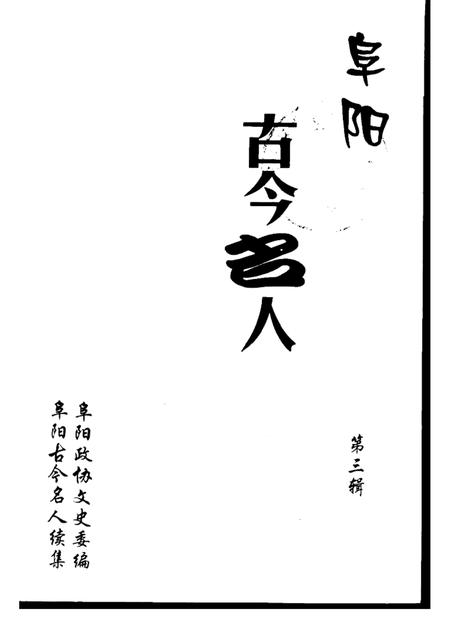 阜阳
古今名人
第三辑
阜阳政协文史委编
阜阳古今名人续集